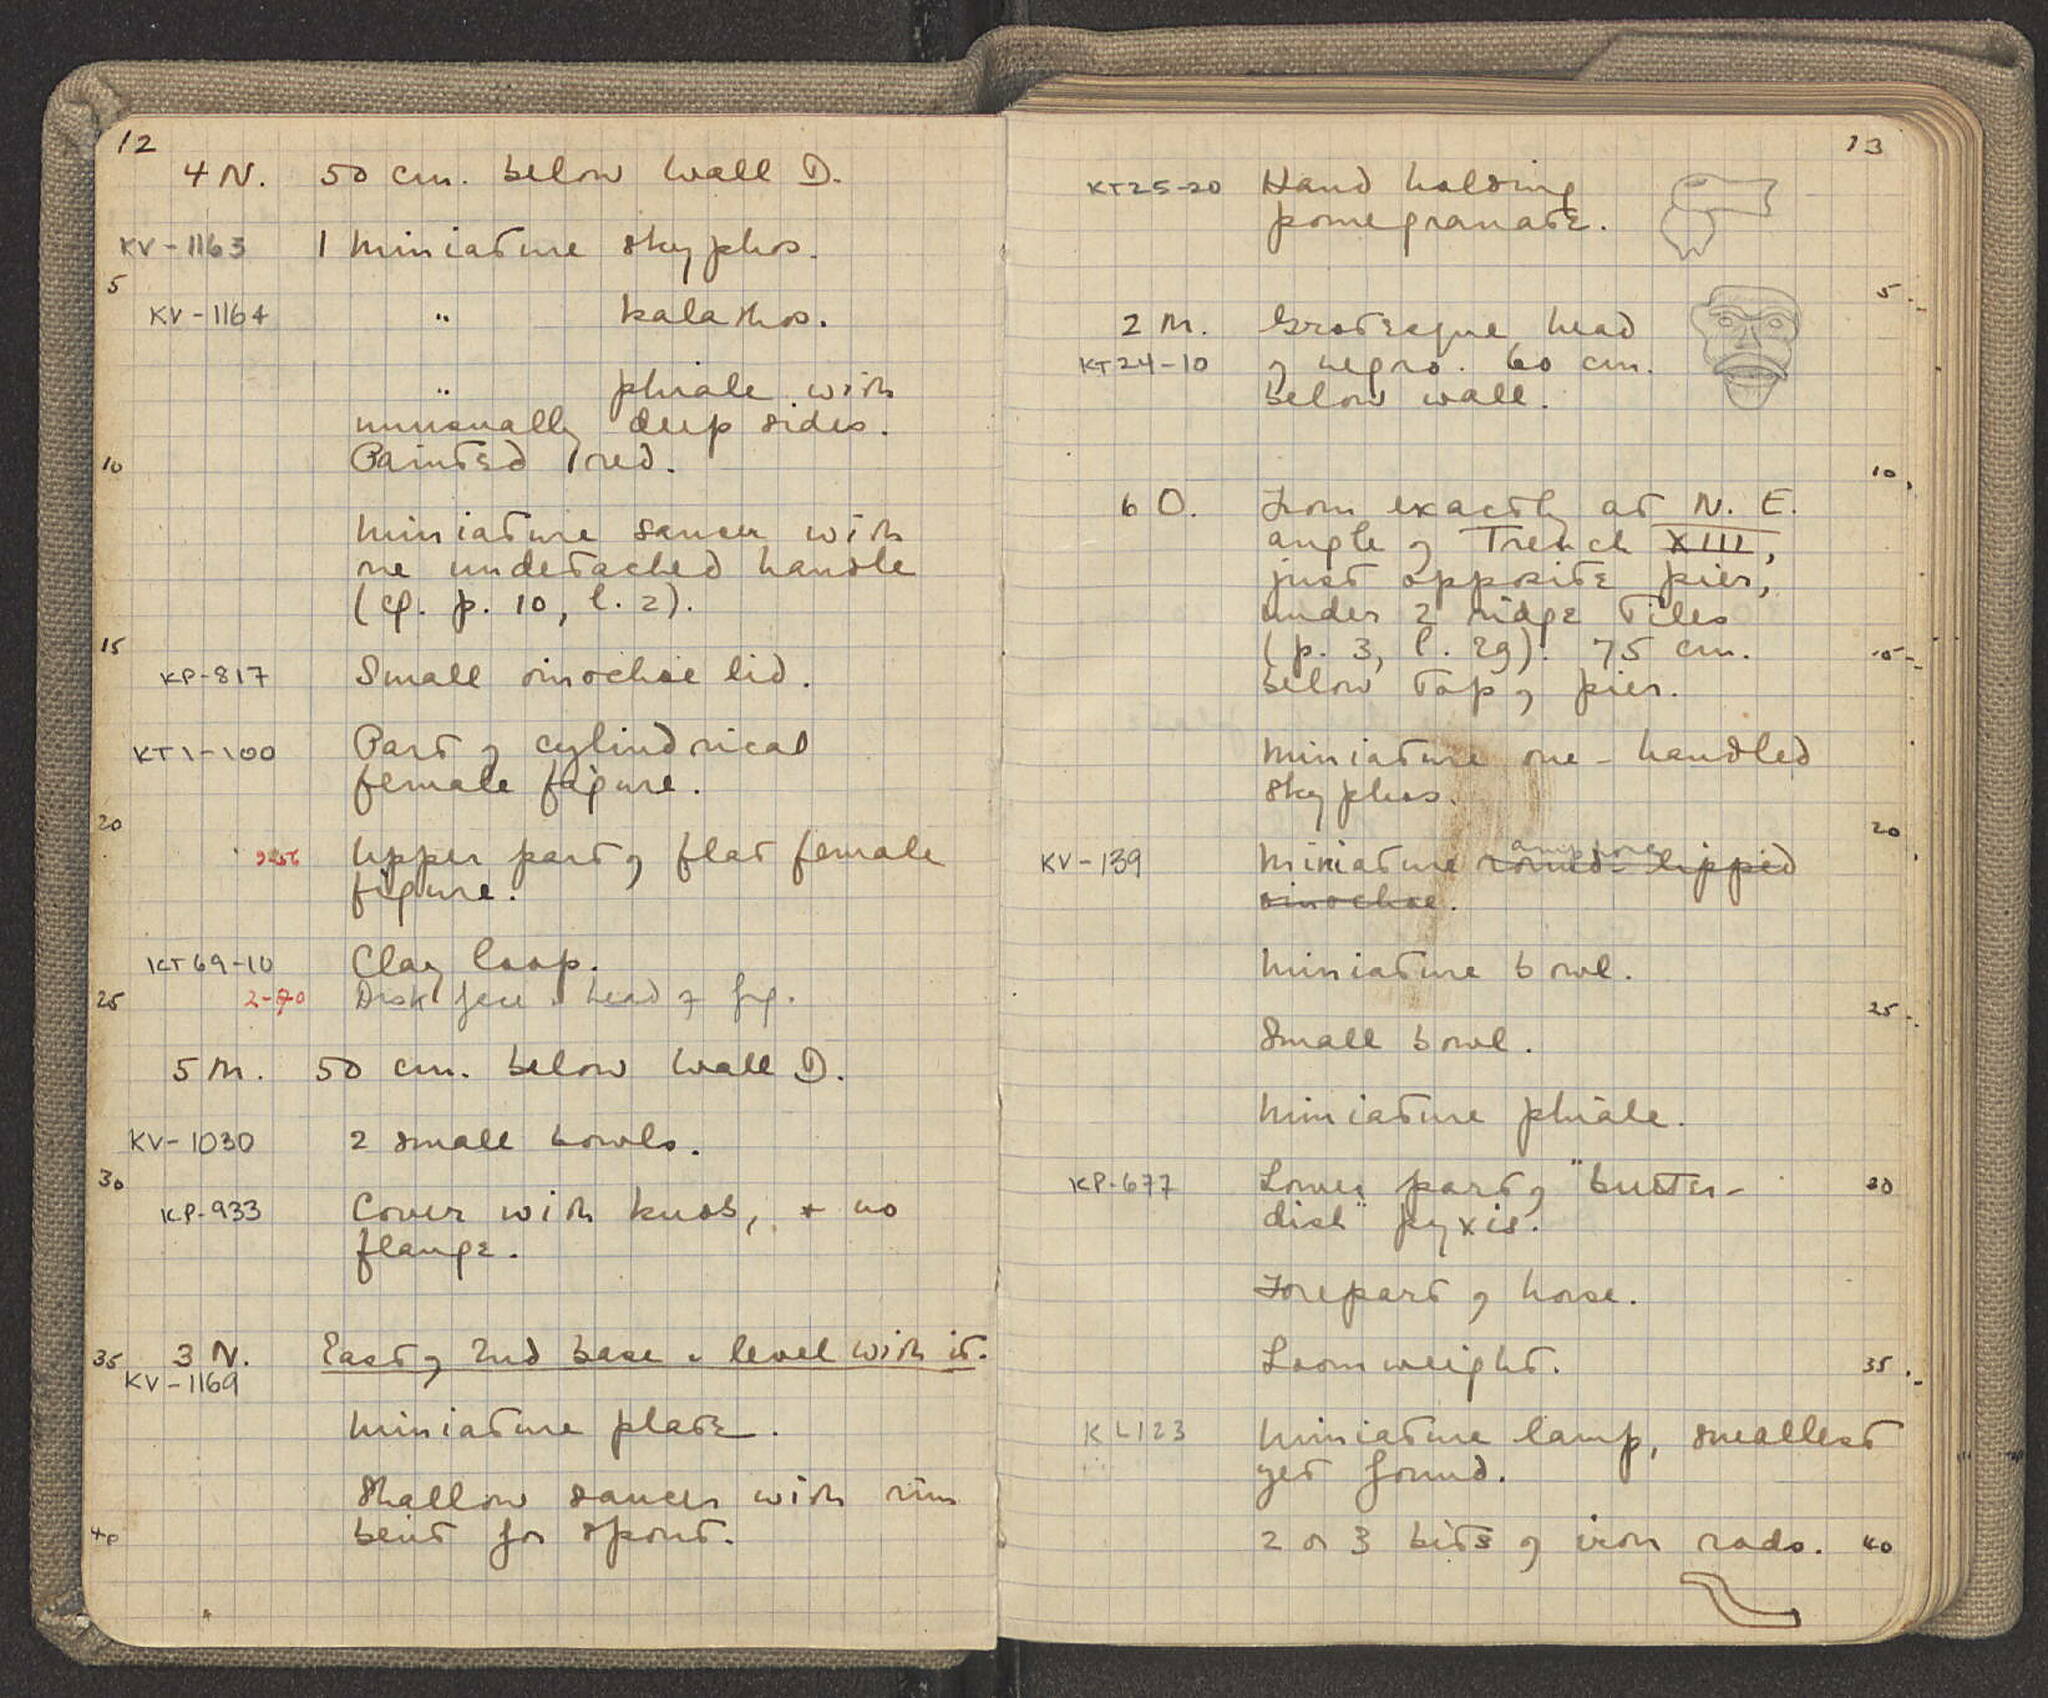 12
4 N. 50 cm. below Wall D.
KV-1163 1 Miniature skyphos.
5
KV-1164 " kalathos.
" phiale with
unusually deep sides.
10 Painted red.
Miniature saucer with
one undetached handle
(cf. p. 10, l. 2).
15
KP-817 Small oinochoe lid.
KT1-100 Part of cylindrical
female figure.
20
Upper part of flat female
figure.
KT69-10 Clay loop.
25 Disk face head of fig.
5 M. 50 cm. below Wall D.
KV-1030 2 small bowls.
30
KP-933 Cover with knob, + no
flange.
35 3 N. East of 2nd base & level with it.
KV-1169
Miniature plate.
Shallow saucer with rim
40 bent for spout.
13
KT25-20 Hand holding
pomegranate.
5
2 M. Grotesque head
KT24-10 of negro. 60 cm.
below wall.
10
6 O. From exactly at N. E.
angle of Trench XIII,
just opposite pier,
under 2 ridge tiles
(p. 3, l. 29). 75 cm. 15
below top of pier.
Miniature one-handled
skyphos.
20
amphora
KV-139 Miniature round-lipped
oinochoe.
Miniature bowl.
25
Small bowl.
Miniature phiale.
KP-677 Lower part of "butter- 30
dish" pyxis.
Forepart of horse.
Loomweight. 35
KL123 Miniature lamp, smallest
yet found.
2 or 3 bits of iron rods. 40